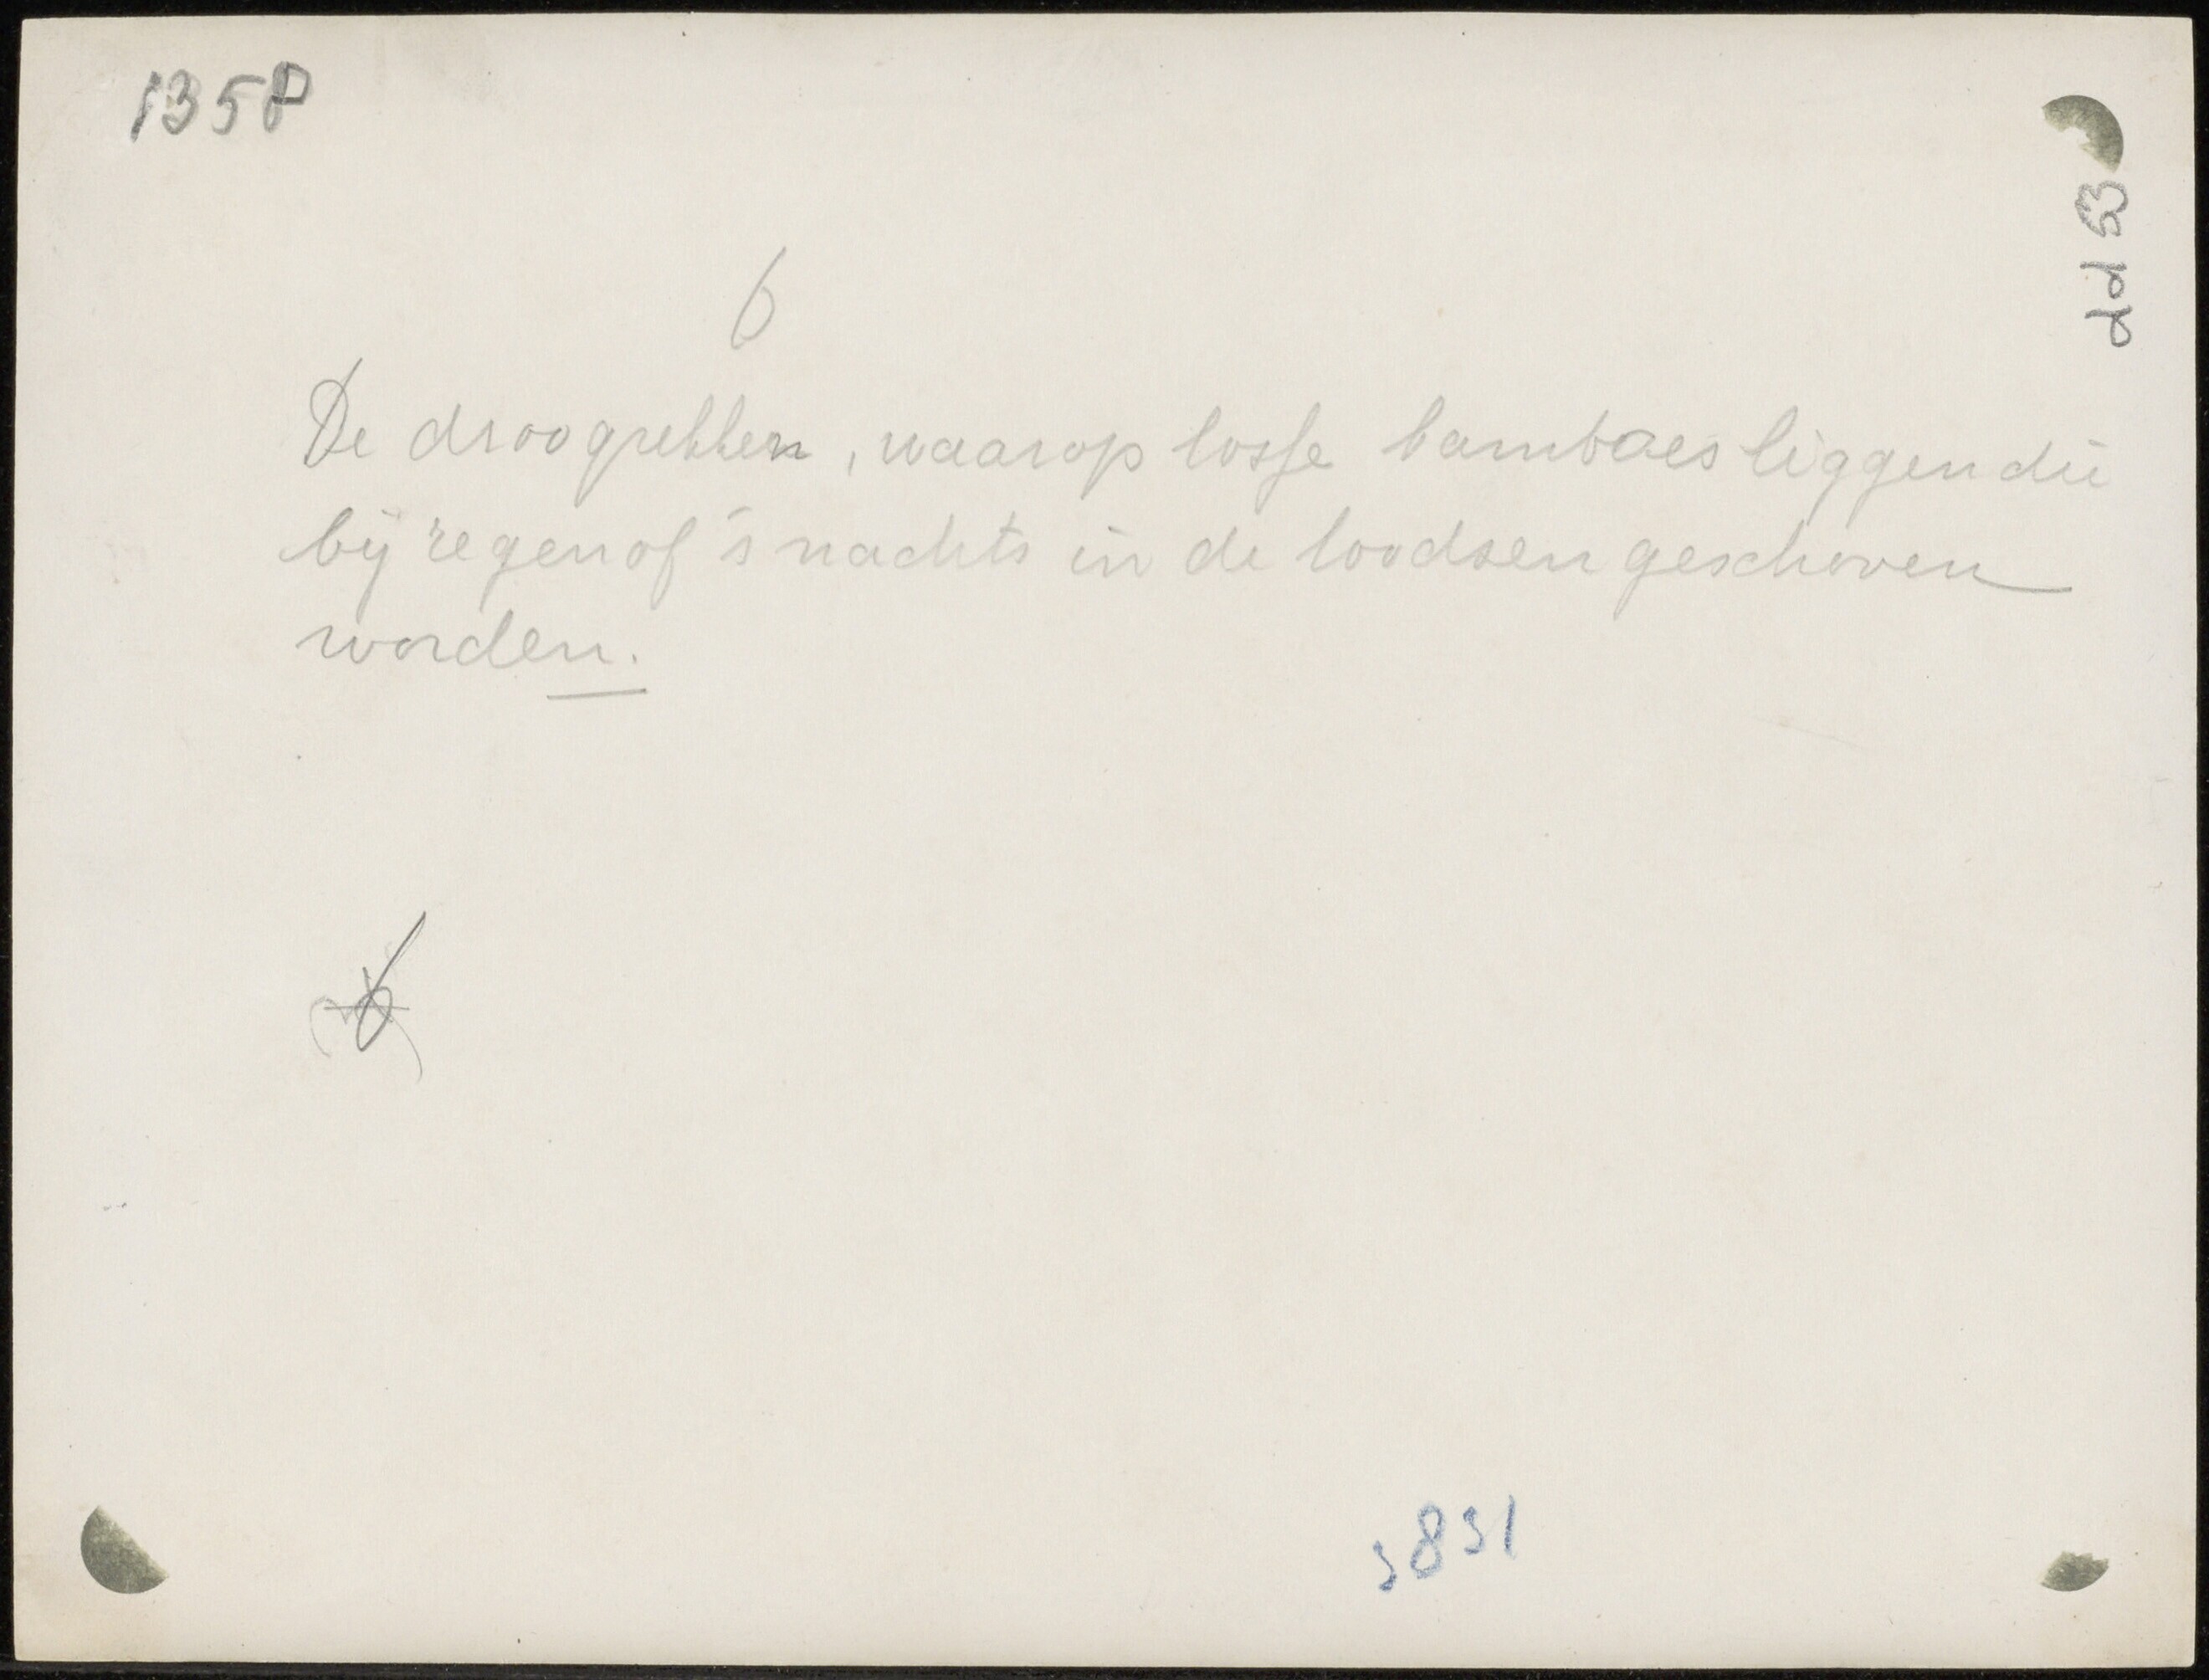 1358
dd 53
6
De droogrekken, waarop losse bamboes liggen die
bij regen of 's nachts in de loodsen geschoven
worden.
6